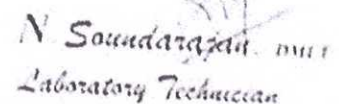 N Soundarajan. DMLT
Laboratory Technician